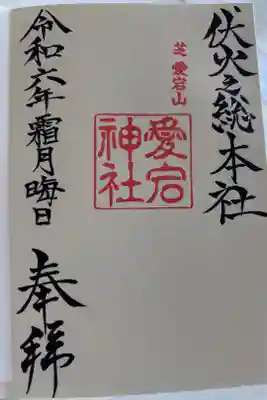 伏火之総本社
芝 愛宕山
愛宕
神社
令和六年霜月晦日
奉拝